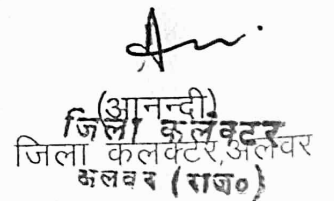 (आनन्दी)
जिला कलेक्टर
जिला कलक्टर, अलवर
अलवर (राज०)